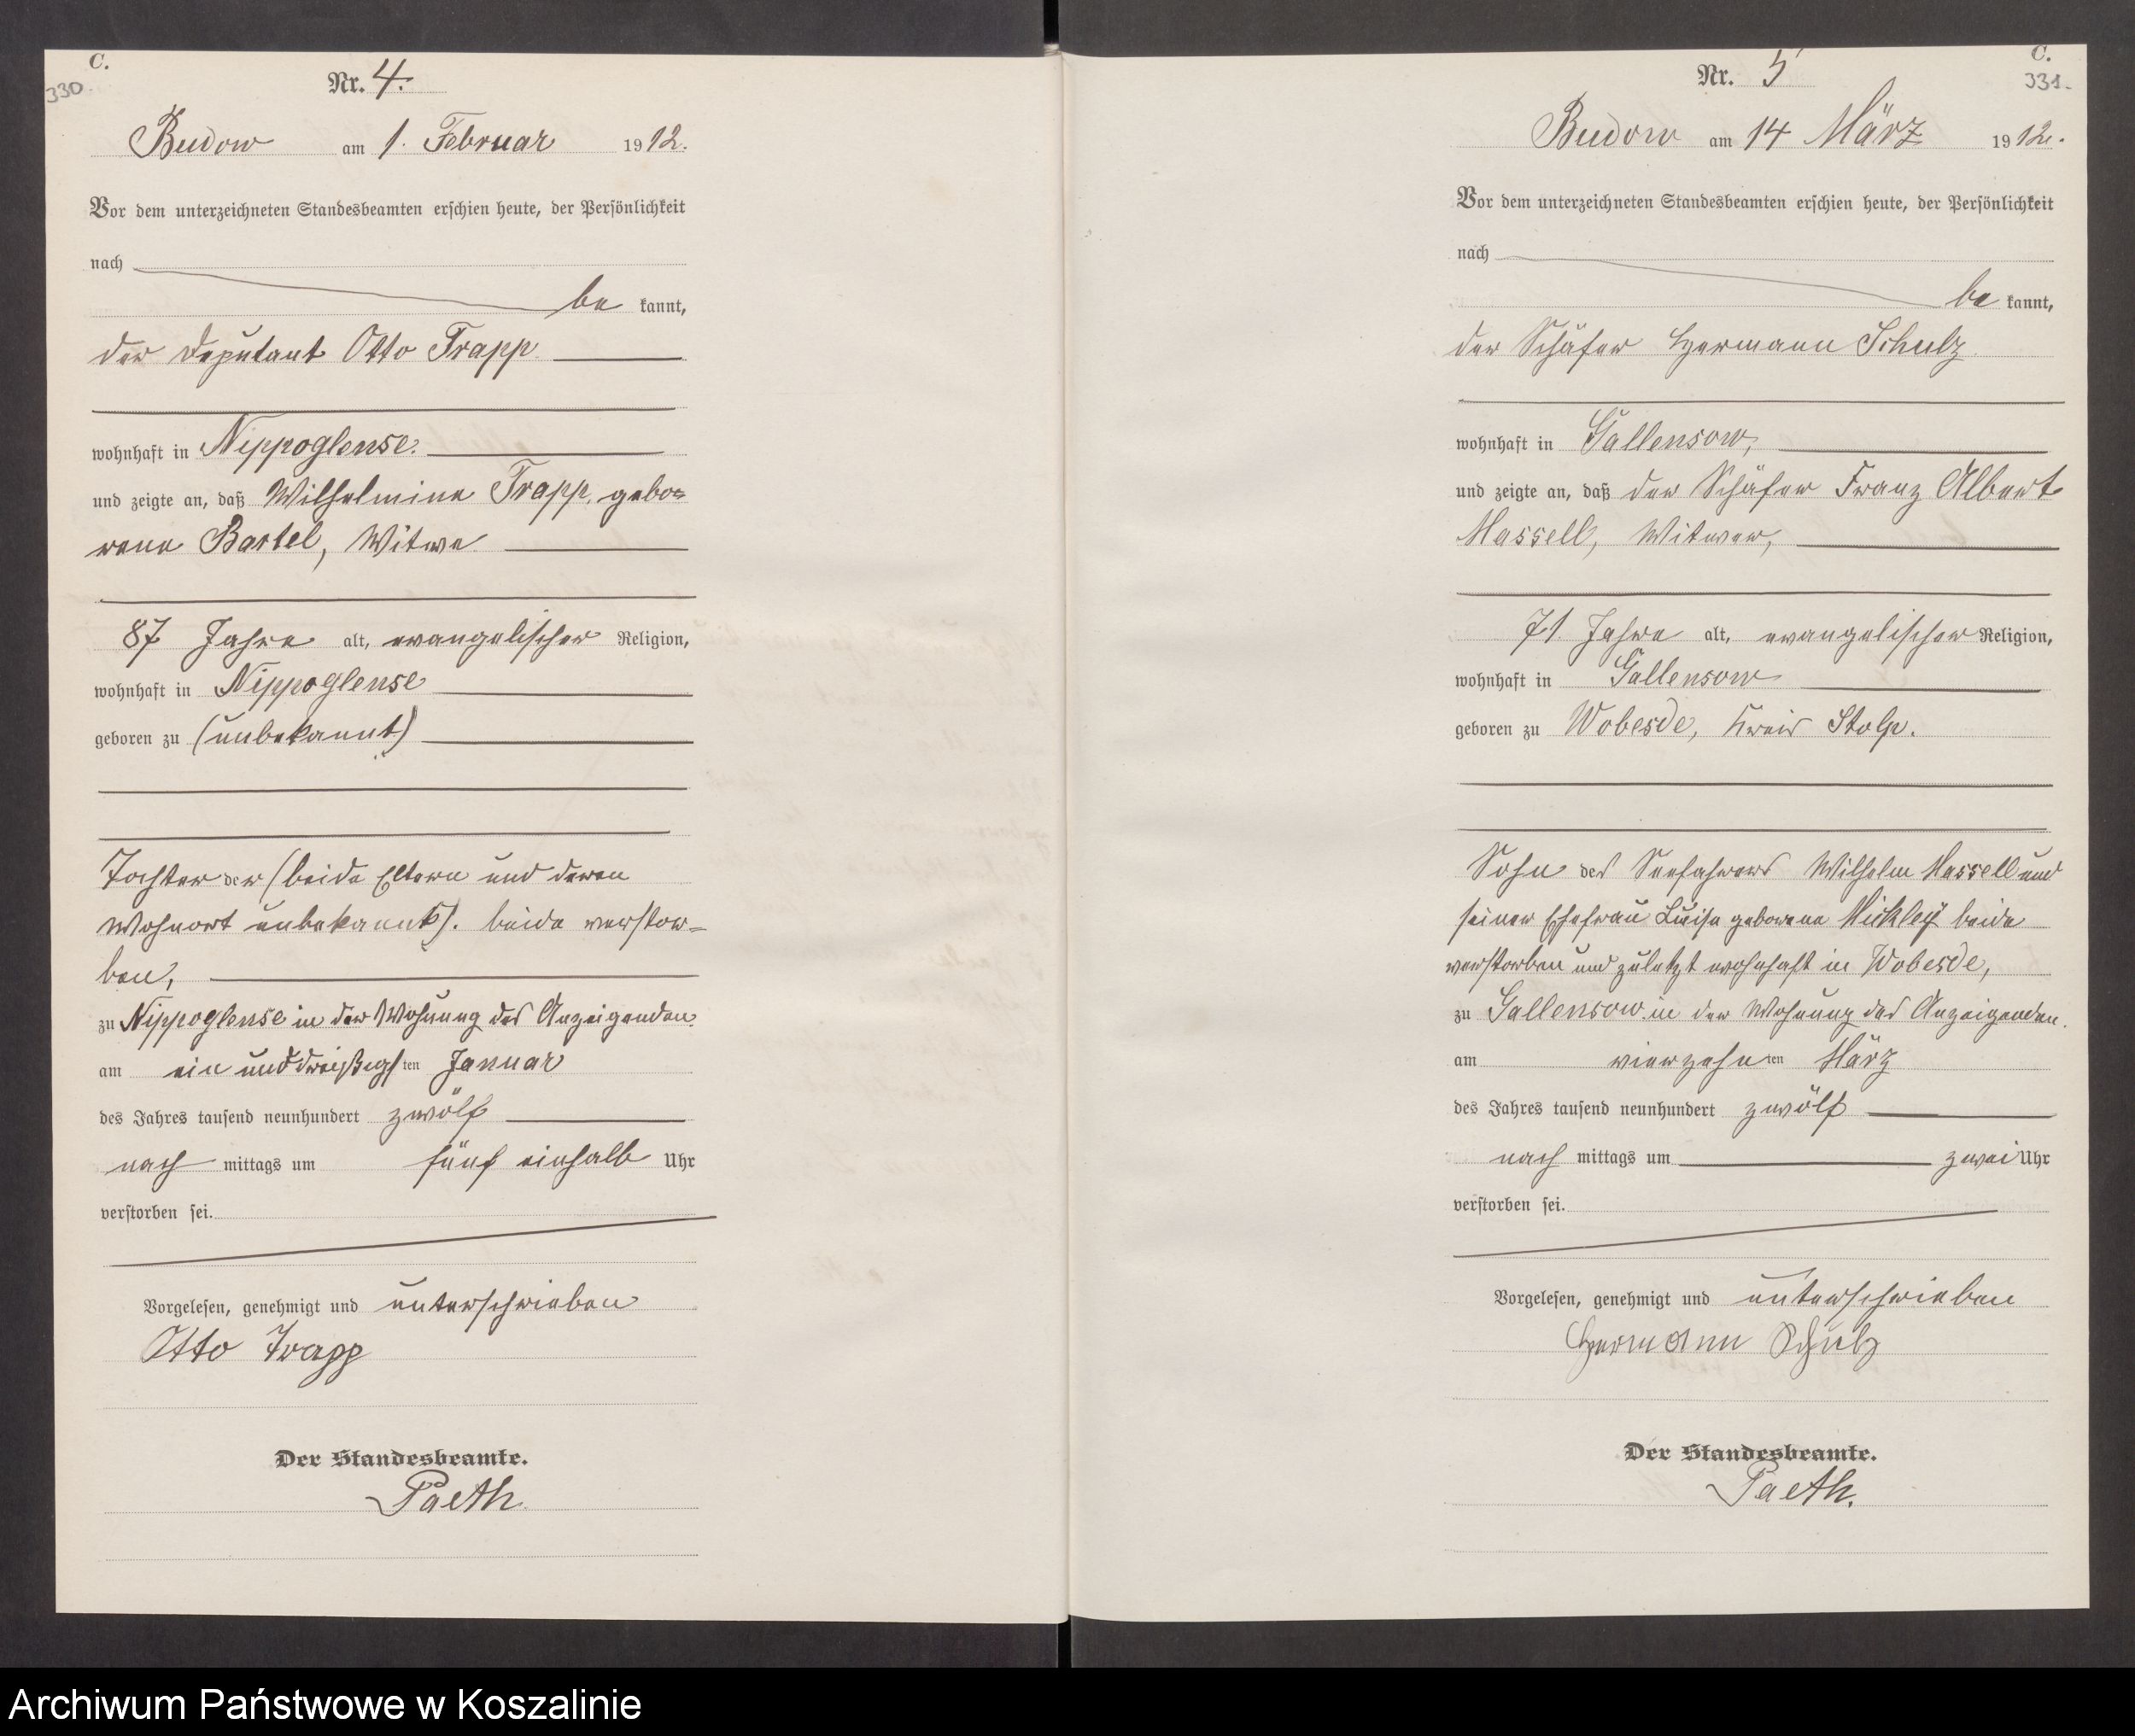 C.
330.
Nr. 4.
Budow am 1. Februar 1912.
Vor dem unterzeichneten Standesbeamten erschien heute, der Persönlichkeit
nach
be kannt,
der Deputant Otto Trapp
wohnhaft in Nippoglense.
und zeigte an, daß Wilhelmine Trapp, gebo=
rene Bartel, Witwe
87 Jahre alt, evangelischer Religion,
wohnhaft in Nippoglense
geboren zu (unbekannt)
Tochter der (beide Eltern und deren
Wohnort unbekannt). beide verstor=
ben,
zu Nippoglense in der Wohnung des Anzeigenden
am ein und dreißigsten Januar
des Jahres tausend neunhundert zwölf
nach mittags um fünf einhalb Uhr
verstorben sei.
Vorgelesen, genehmigt und unterschrieben
Otto Trapp
Der Standesbeamte.
Paeth.
C.
331.
Nr. 5
Budow am 14 März 1912.
Vor dem unterzeichneten Standesbeamten erschien heute, der Persönlichkeit
nach
be kannt,
der Schäfer Hermann Schulz
wohnhaft in Gallensow,
und zeigte an, daß der Schäfer Franz Albert
Massell, Witwer,
71 Jahre alt, evangelischer Religion,
wohnhaft in Gallensow
geboren zu Wobesde, Kreis Stolp.
Sohn des Seefahrers Wilhelm Massell und
seiner Ehefrau Luise geborene Mickley beide
verstorben und zuletzt wohnhaft in Wobesde,
zu Gallensow in der Wohnung des Anzeigenden.
am vierzehnten März
des Jahres tausend neunhundert zwölf
nach mittags um zwei Uhr
verstorben sei.
Vorgelesen, genehmigt und unterschrieben
Hermann Schulz
Der Standesbeamte.
Paeth.
Archiwum Państwowe w Koszalinie